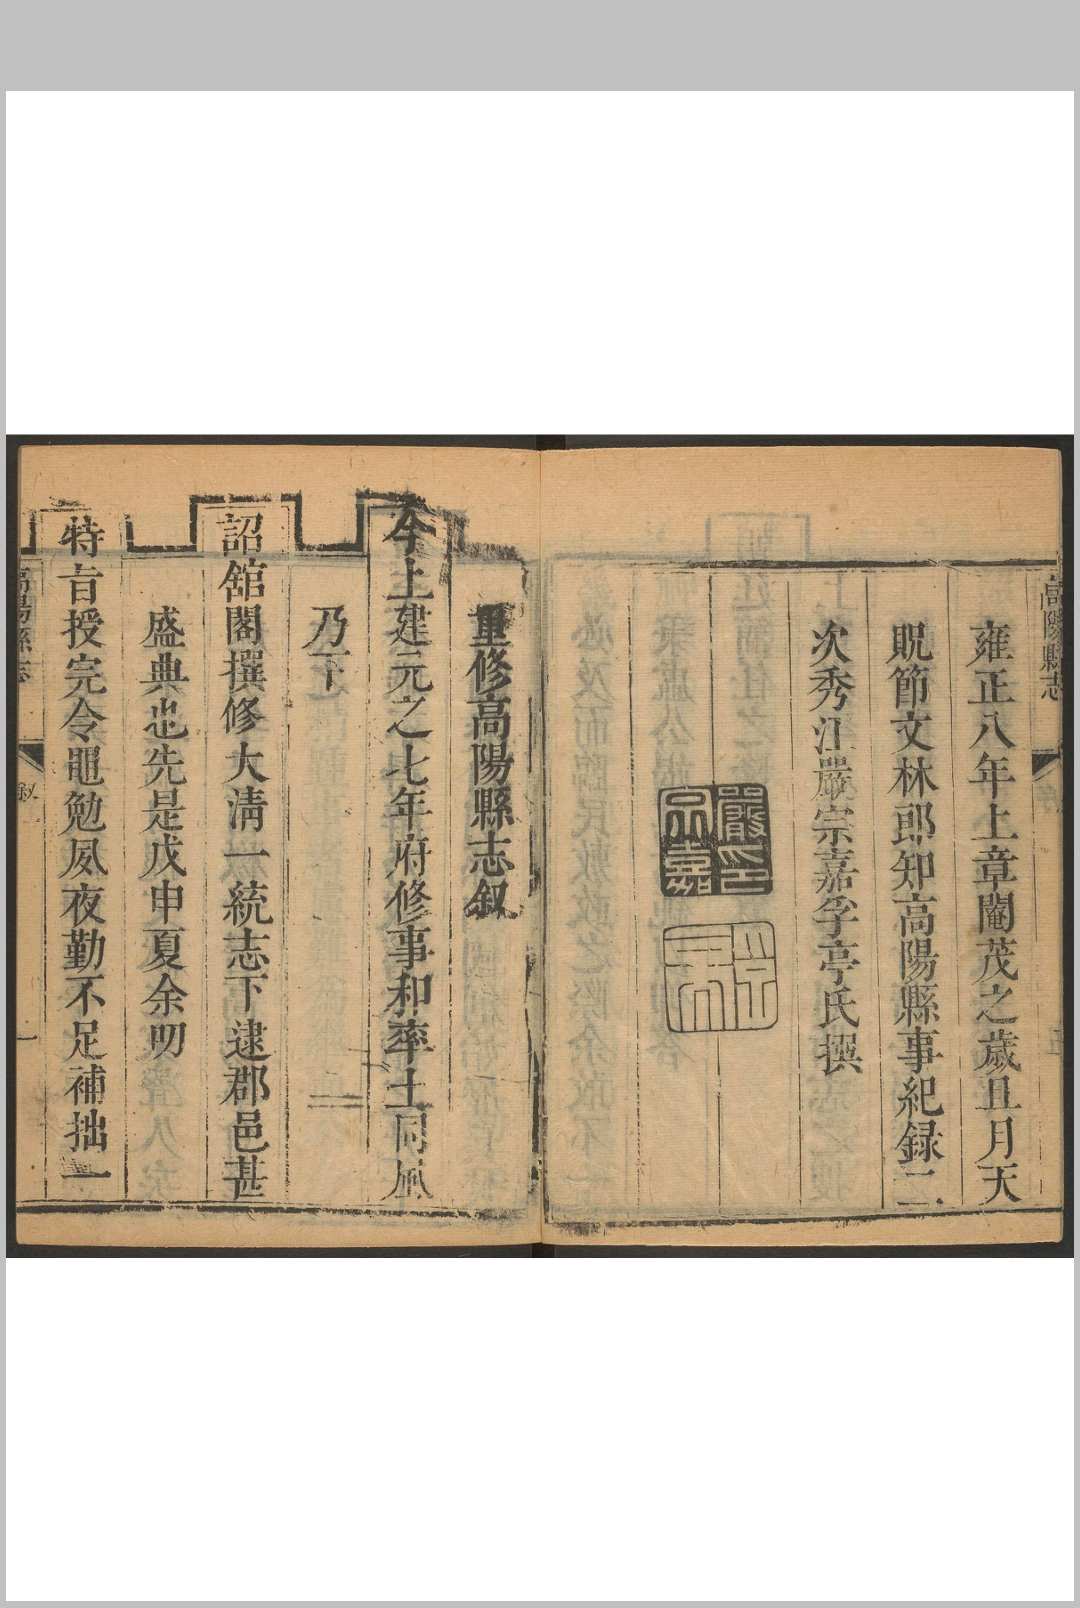 高陽縣志
序
雍正八年上章閹茂之歲且月天
貺節文林郎知高陽縣事紀錄二
次秀江嚴宗嘉孚亭氏撰
嚴印宗嘉
重修高陽縣志叙
今上建元之七年府修事和率土同風
乃下
詔舘閣撰修大清一統志下逮郡邑甚
盛典也先是戊申夏余叨
特旨授完令黽勉夙夜勤不足補拙一
高陽縣志
叙
一